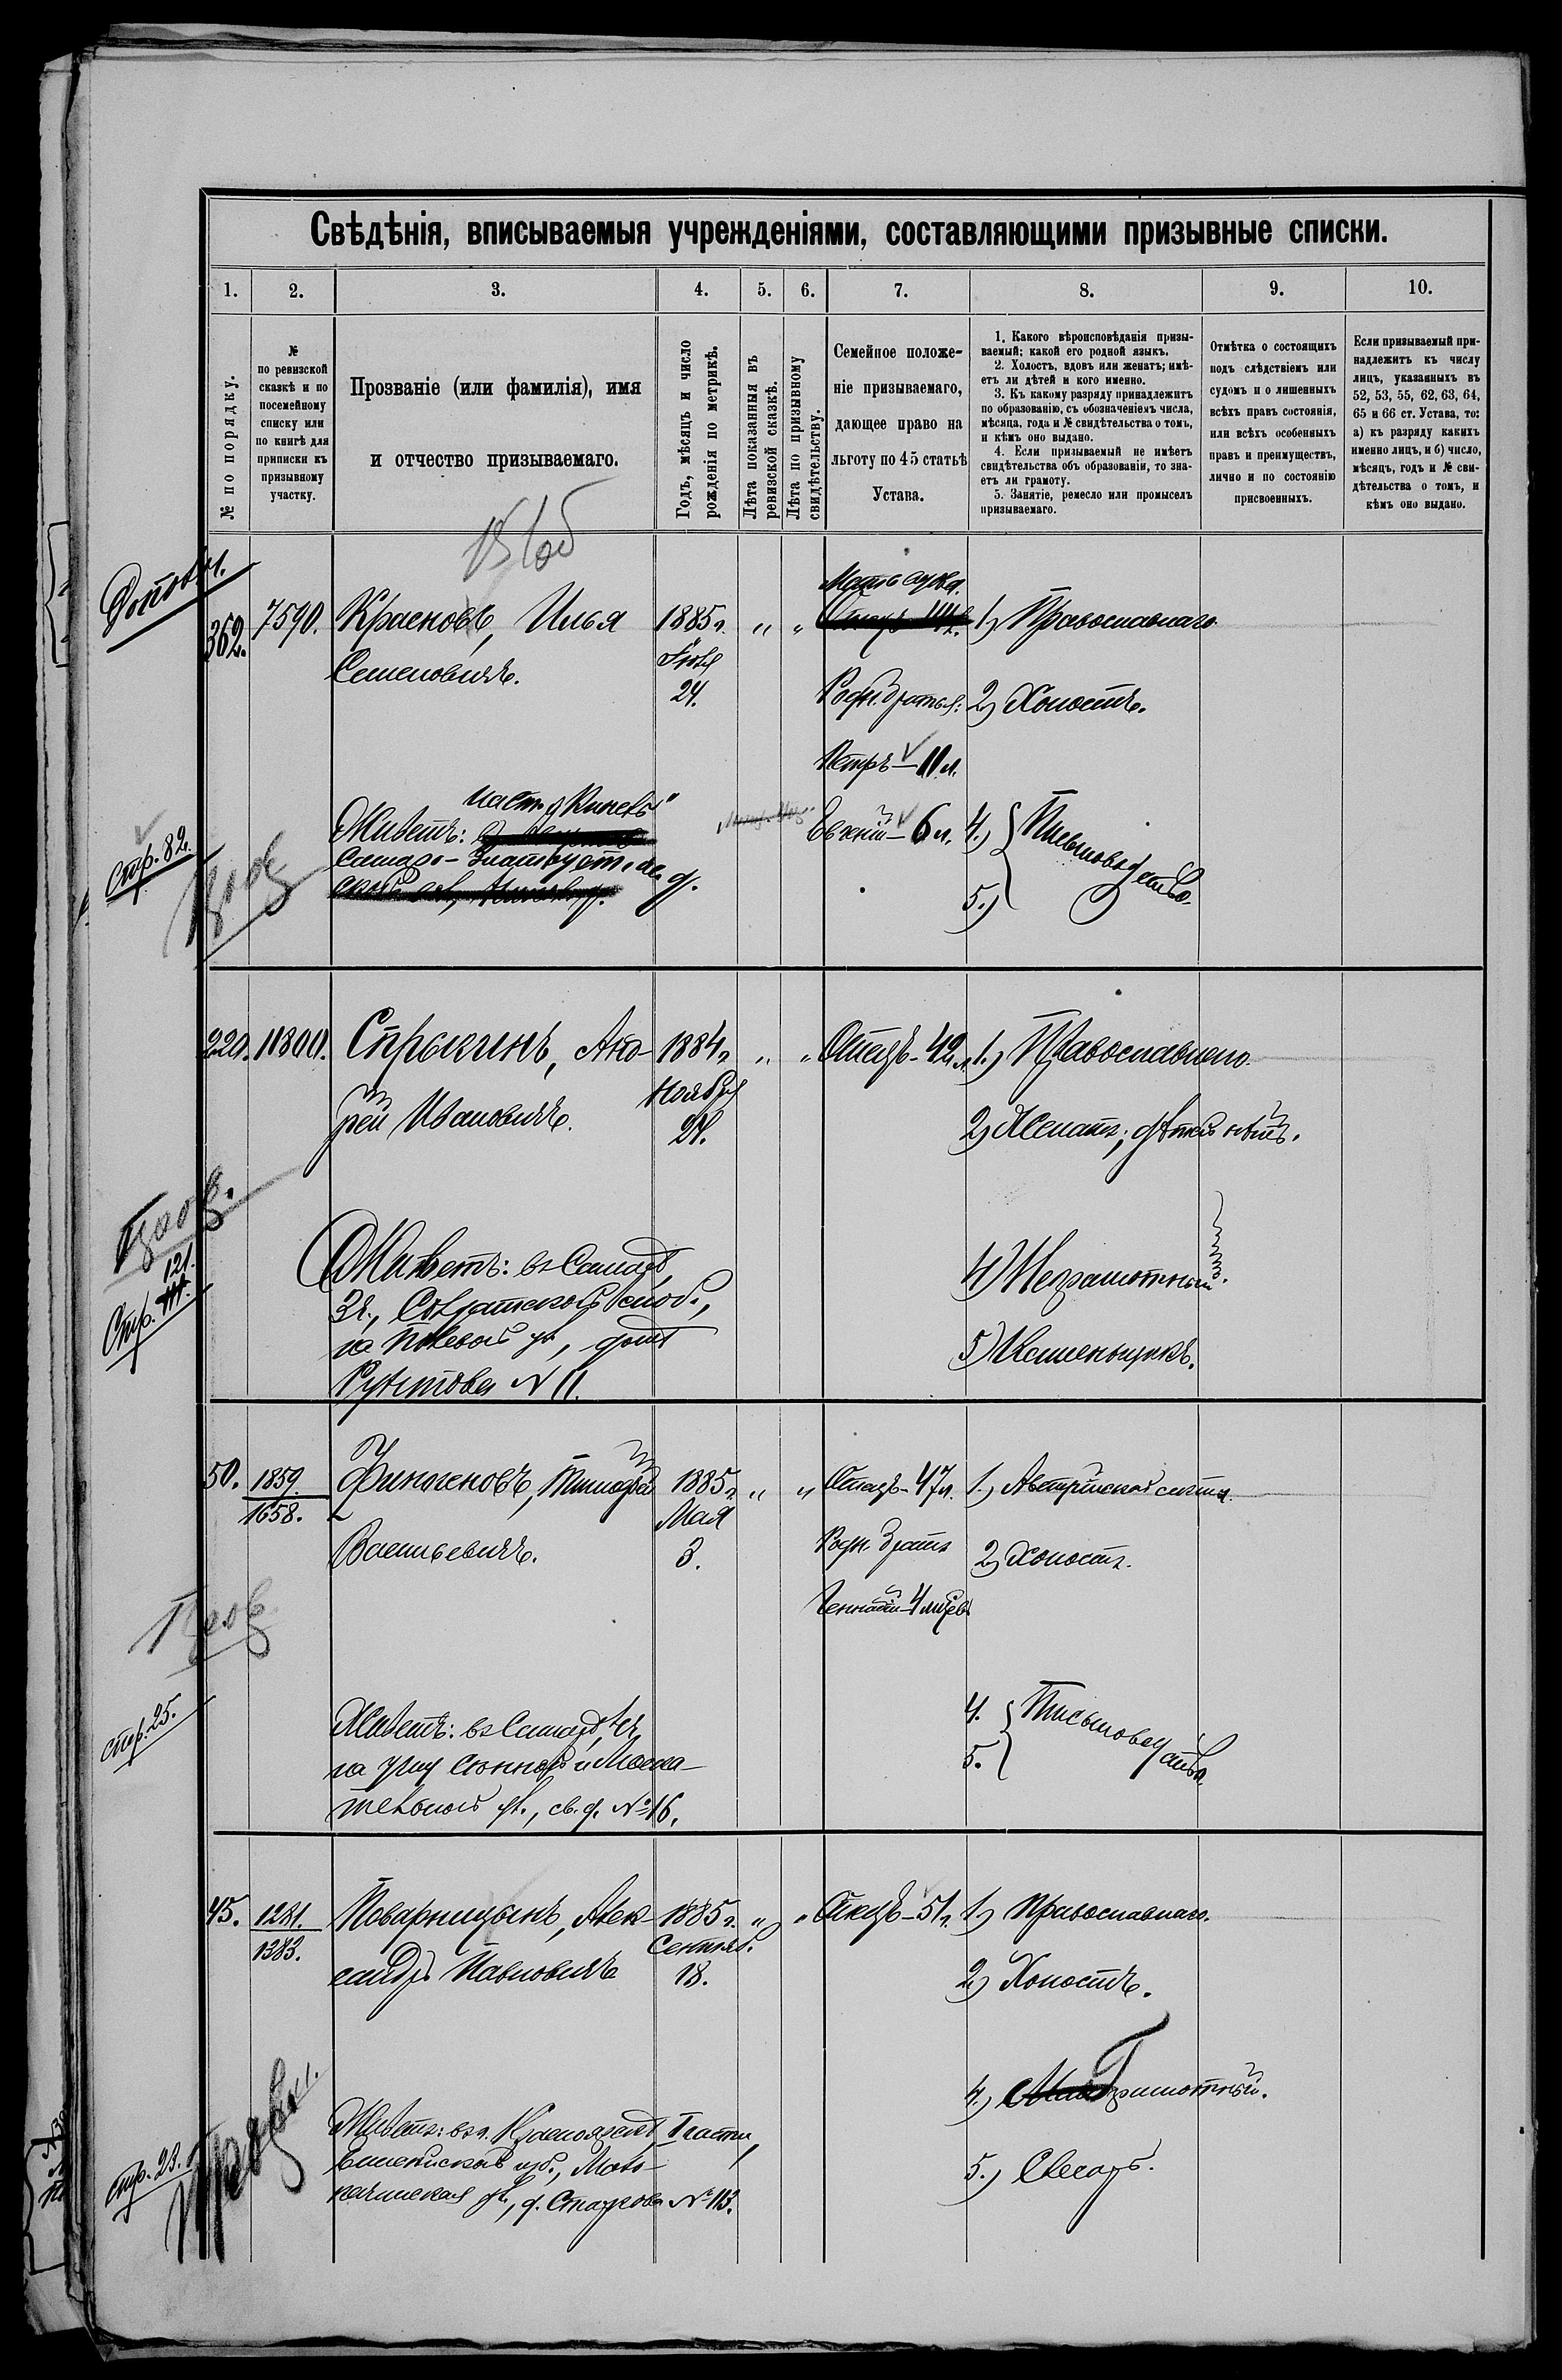 Свѣдѣнія, вписываемыя учрежденіями, составляющими призывные списки.
1.
2.
3.
4.
5.
6.
7.
8.
9.
10.
№ по порядку.
№
по ревизской
сказкѣ и по
посемейному
списку или
по книгѣ для
приписки къ
призывному
участку.
Прозваніе (или фамилія), имя
и отчество призываемаго.
Годъ, мѣсяцъ и число
рожденія по метрикѣ.
Лѣта показанныя въ
ревизской сказкѣ.
Лѣта по призывному
свидѣтельству.
Семейное положе-
ніе призываемаго,
дающее право на
льготу по 45 статьѣ
Устава.
1. Какого вѣроисповѣданія призы-
ваемый; какой его родной языкъ.
2. Холостъ, вдовъ или женатъ; имѣ-
етъ ли дѣтей и кого именно.
3. Къ какому разряду принадлежитъ
по образованію, съ обозначеніемъ числа,
мѣсяца, года и № свидѣтельства о томъ,
и кѣмъ оно выдано.
4. Если призываемый не имѣетъ
свидѣтельства объ образованіи, то зна-
етъ ли грамоту.
5. Занятіе, ремесло или промыселъ
призываемаго.
Отмѣтка о состоящихъ
подъ слѣдствіемъ или
судомъ и о лишенныхъ
всѣхъ правъ состоянія,
или всѣхъ особенныхъ
правъ и преимуществъ,
лично и по состоянію
присвоенныхъ.
Если призываемый при-
надлежитъ къ числу
лицъ, указанныхъ въ
52, 53, 55, 62, 63, 64,
65 и 66 ст. Устава, то:
а) къ разряду какихъ
именно лицъ, и б) число,
мѣсяцъ, годъ и № сви-
дѣтельства о томъ, и
кѣмъ оно выдано.
362.
7590.
Красновъ, Илья
Семеновичъ.
1885 г.
Іюля
24.
" "
Мать вдова.
Родн. братья:
Петръ – 11 л.
Евгеній – 6 л.
1) Православнаго
2) Холостъ.
4.)
5.)
Письмоводство.
на ст. "Кинель"
Живетъ:
Самаро-Златоуст. ж. д.
Стр. 82.
220.
11800.
Стрыгинъ, Анд-
рей Ивановичъ.
1884 г.
Ноября
24.
" "
Отецъ – 42 л.
1.) Православнаго.
2) Женатъ; дѣтей нѣтъ.
4) Неграмотный.
5) Каменьщикъ.
Живетъ: въ Самарѣ,
3 ч., Солдатской слоб.,
на Полевой ул., домъ
№ 11.
121.
Стр.
50.
1859.
1658.
Финогеновъ, Тимофей
Васильевичъ.
1885 г.
Мая
3.
" "
Отецъ – 47 л.
Родн. братъ
Геннадій – 4 мѣсяц.
1.) Австрійской секты.
2) Холостъ.
4.
5.
Письмоводство.
Живетъ: въ Самарѣ, 1 ч.
на углу Сѣнной и Моска-
тельной ул., св. д. № 16.
стр. 25.
45.
1281.
1383.
Поварницынъ, Алек-
сандръ Павловичъ
1885 г.
Сентяб.
18.
" "
Отецъ – 51 г.
1) Православнаго.
2) Холостъ.
4.) Грамотный.
5.) Слесарь.
Живетъ: въ г. Красноярскѣ, I части,
Енисейской губ.,
ул., д. № 113.
стр. 23.